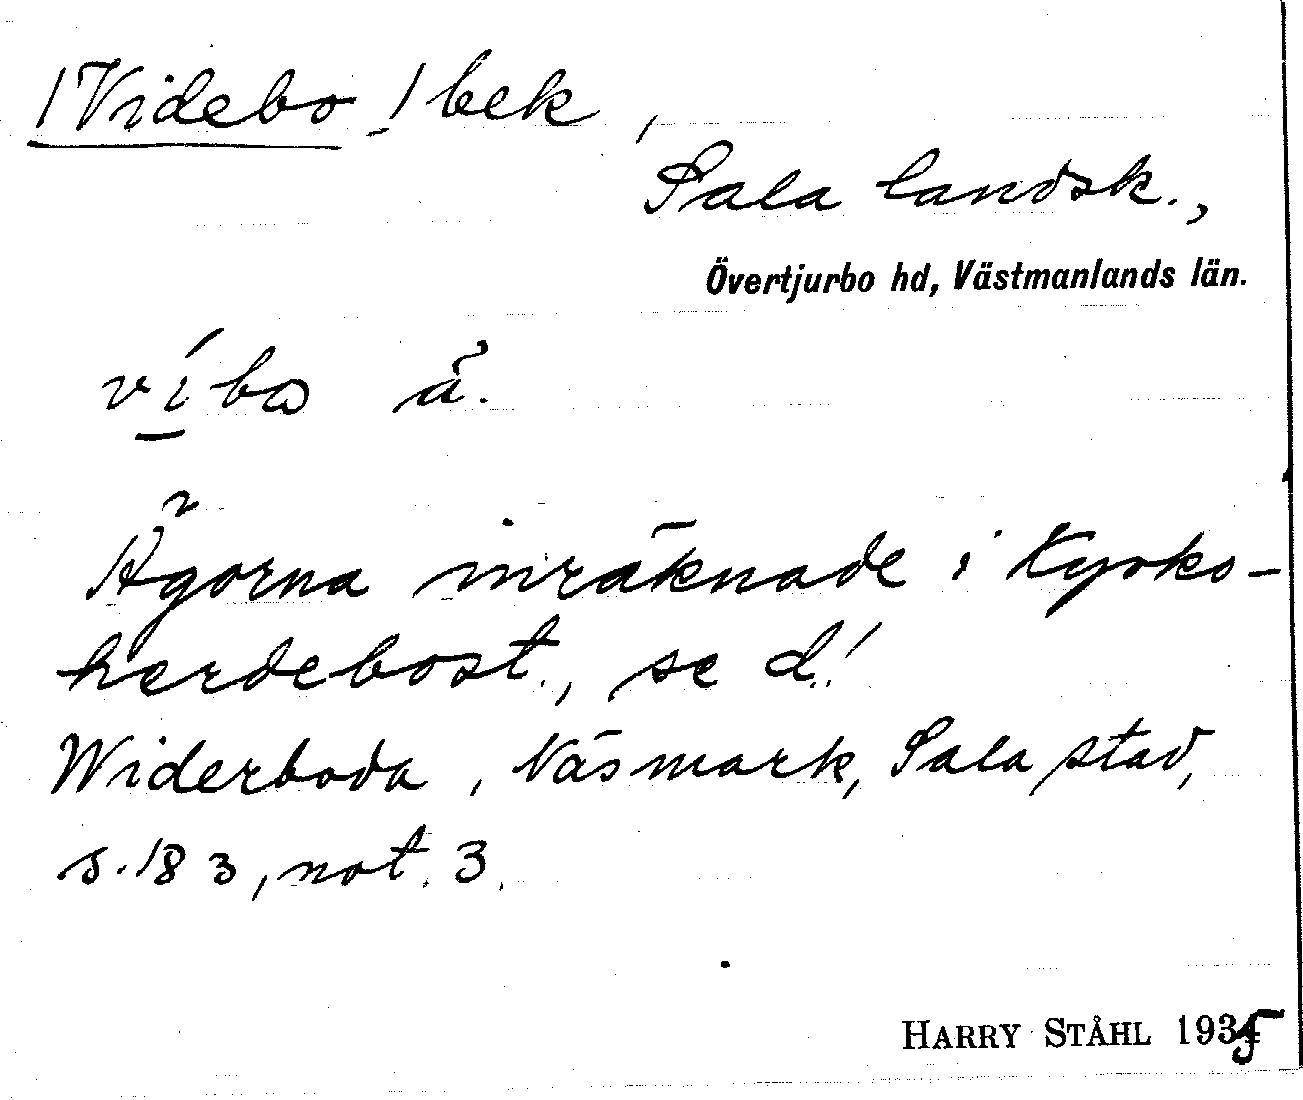 /Videbo / bek ,
Sala landsk.,
Övertjurbo hd, Västmanlands län.
víbo ä.
Ägorna inräknade i Kyrko-
herdebost., se d.!
Widerboda , Väsmark, Sala stad,
s. 183, not. 3.
HARRY STÅHL 1935